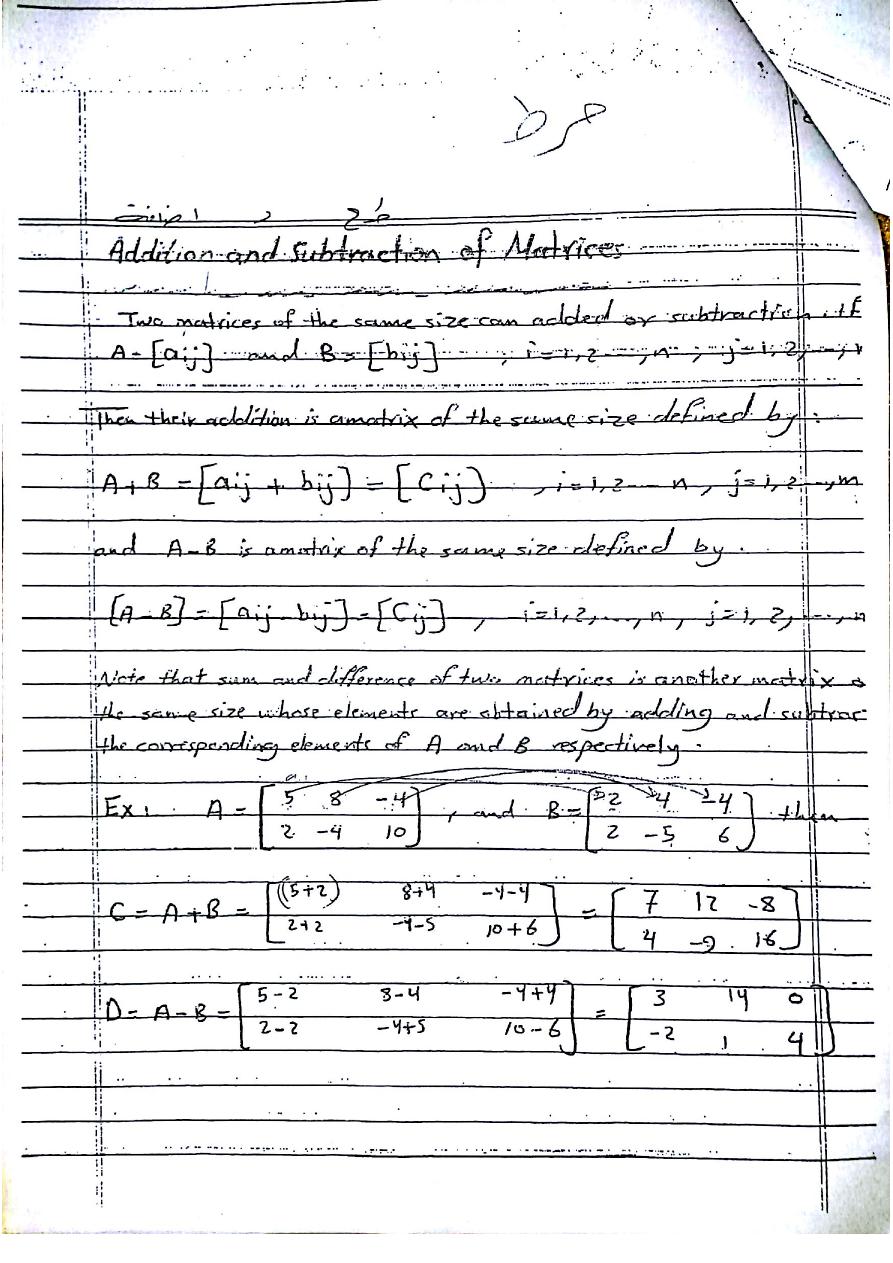 طرح و اضافة
Addition and Subtraction of Matrices
Two matrices of the same size can added or subtraction if
A = [aij] and B = [bij] , i=1,2 ...,n , j=1,2,...,
Then their addition is amatrix of the same size defined by:
A+B = [aij + bij] = [Cij] , i=1,2 ... n, j=1,2 ...,m
and A-B is amatrix of the same size defined by.
[A-B] = [aij - bij] = [Cij] , i=1,2,...,n, j=1,2,...,n
Note that sum and difference of two matrices is another matrix o
the same size whose elements are obtained by adding and subtrac
the corresponding elements of A and B respectively.
Ex: A = [5 8 -4 , and B = [2 4 -4 then
2 -4 10] 2 -5 6]
C = A+B = [(5+2) 8+4 -4-4 = [7 12 -8
2+2 -4-5 10+6] 4 -9 16]
D = A-B = [5-2 8-4 -4+4 = [3 14 0
2-2 -4+5 10-6] -2 1 4]